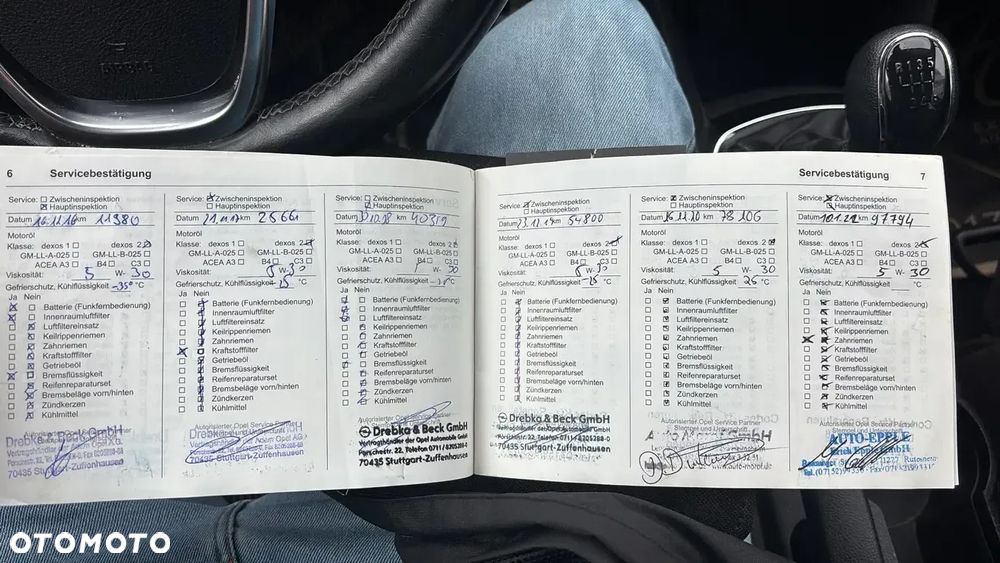 AIRBAG
R 1 3 5
2 4 6
6 Servicebestätigung
Service: Zwischeninspektion
Hauptinspektion
Datum 16.11.16 km 11380
Motoröl
Klasse: dexos 1 dexos 2
GM-LL-A-025 GM-LL-B-025
ACEA A3 B4 C3
Viskosität: 5 W- 30
Gefrierschutz, Kühlflüssigkeit -35° °C
Ja Nein
Batterie (Funkfernbedienung)
Innenraumluftfilter
Luftfiltereinsatz
Keilrippenriemen
Zahnriemen
Kraftstofffilter
Getriebeöl
Bremsflüssigkeit
Reifenreparaturset
Bremsbeläge vorn/hinten
Zündkerzen
Kühlmittel
Autorisierter Opel Service Partner
Drebka & Beck GmbH
70435 Stuttgart-Zuffenhausen
Service: Zwischeninspektion
Hauptinspektion
Datum km
Motoröl
Klasse: dexos 1 dexos 2
GM-LL-A-025 GM-LL-B-025
ACEA A3 B4 C3
Viskosität: 5 W- 30
Gefrierschutz, Kühlflüssigkeit °C
Ja Nein
Batterie (Funkfernbedienung)
Innenraumluftfilter
Luftfiltereinsatz
Keilrippenriemen
Zahnriemen
Kraftstofffilter
Getriebeöl
Bremsflüssigkeit
Reifenreparaturset
Bremsbeläge vorn/hinten
Zündkerzen
Kühlmittel
Autorisierter Opel Service Partner
70435 Stuttgart-Zuffenhausen
Service: Zwischeninspektion
Hauptinspektion
Datum km 40319
Motoröl
Klasse: dexos 1 dexos 2
GM-LL-A-025 GM-LL-B-025
ACEA A3 B4 C3
Viskosität: W- 30
Gefrierschutz, Kühlflüssigkeit °C
Ja Nein
Batterie (Funkfernbedienung)
Innenraumluftfilter
Luftfiltereinsatz
Keilrippenriemen
Zahnriemen
Kraftstofffilter
Getriebeöl
Bremsflüssigkeit
Reifenreparaturset
Bremsbeläge vorn/hinten
Zündkerzen
Kühlmittel
Autorisierter Opel Service Partner
Drebka & Beck GmbH
Vertragshändler der Opel Automobile GmbH
Porschestr. 22, Telefon 0711/8205388-0
70435 Stuttgart-Zuffenhausen
Servicebestätigung 7
Service: Zwischeninspektion
Hauptinspektion
Datum km 54800
Motoröl
Klasse: dexos 1 dexos 2
GM-LL-A-025 GM-LL-B-025
ACEA A3 B4 C3
Viskosität: 5 W- 30
Gefrierschutz, Kühlflüssigkeit °C
Ja Nein
Batterie (Funkfernbedienung)
Innenraumluftfilter
Luftfiltereinsatz
Keilrippenriemen
Zahnriemen
Kraftstofffilter
Getriebeöl
Bremsflüssigkeit
Reifenreparaturset
Bremsbeläge vorn/hinten
Zündkerzen
Kühlmittel
Drebka & Beck GmbH
Vertragshändler der Opel Automobile GmbH
Porschestr. 22, Telefon 0711/8205388-0
70435 Stuttgart-Zuffenhausen
Service: Zwischeninspektion
Hauptinspektion
Datum 26.11.20 km 78106
Motoröl
Klasse: dexos 1 dexos 2
GM-LL-A-025 GM-LL-B-025
ACEA A3 B4 C3
Viskosität: 5 W- 30
Gefrierschutz, Kühlflüssigkeit °C
Ja Nein
Batterie (Funkfernbedienung)
Innenraumluftfilter
Luftfiltereinsatz
Keilrippenriemen
Zahnriemen
Kraftstofffilter
Getriebeöl
Bremsflüssigkeit
Reifenreparaturset
Bremsbeläge vorn/hinten
Zündkerzen
Kühlmittel
Autorisierter Opel Service Partner
Stempel und Unterschrift
Service: Zwischeninspektion
Hauptinspektion
Datum km 91794
Motoröl
Klasse: dexos 1 dexos 2
GM-LL-A-025 GM-LL-B-025
ACEA A3 B4 C3
Viskosität: 5 W- 30
Gefrierschutz, Kühlflüssigkeit °C
Ja Nein
Batterie (Funkfernbedienung)
Innenraumluftfilter
Luftfiltereinsatz
Keilrippenriemen
Zahnriemen
Kraftstofffilter
Getriebeöl
Bremsflüssigkeit
Reifenreparaturset
Bremsbeläge vorn/hinten
Zündkerzen
Kühlmittel
Autorisierter Opel Service Partner
Stempel und Unterschrift
AUTO-EPPLE
OTOMOTO